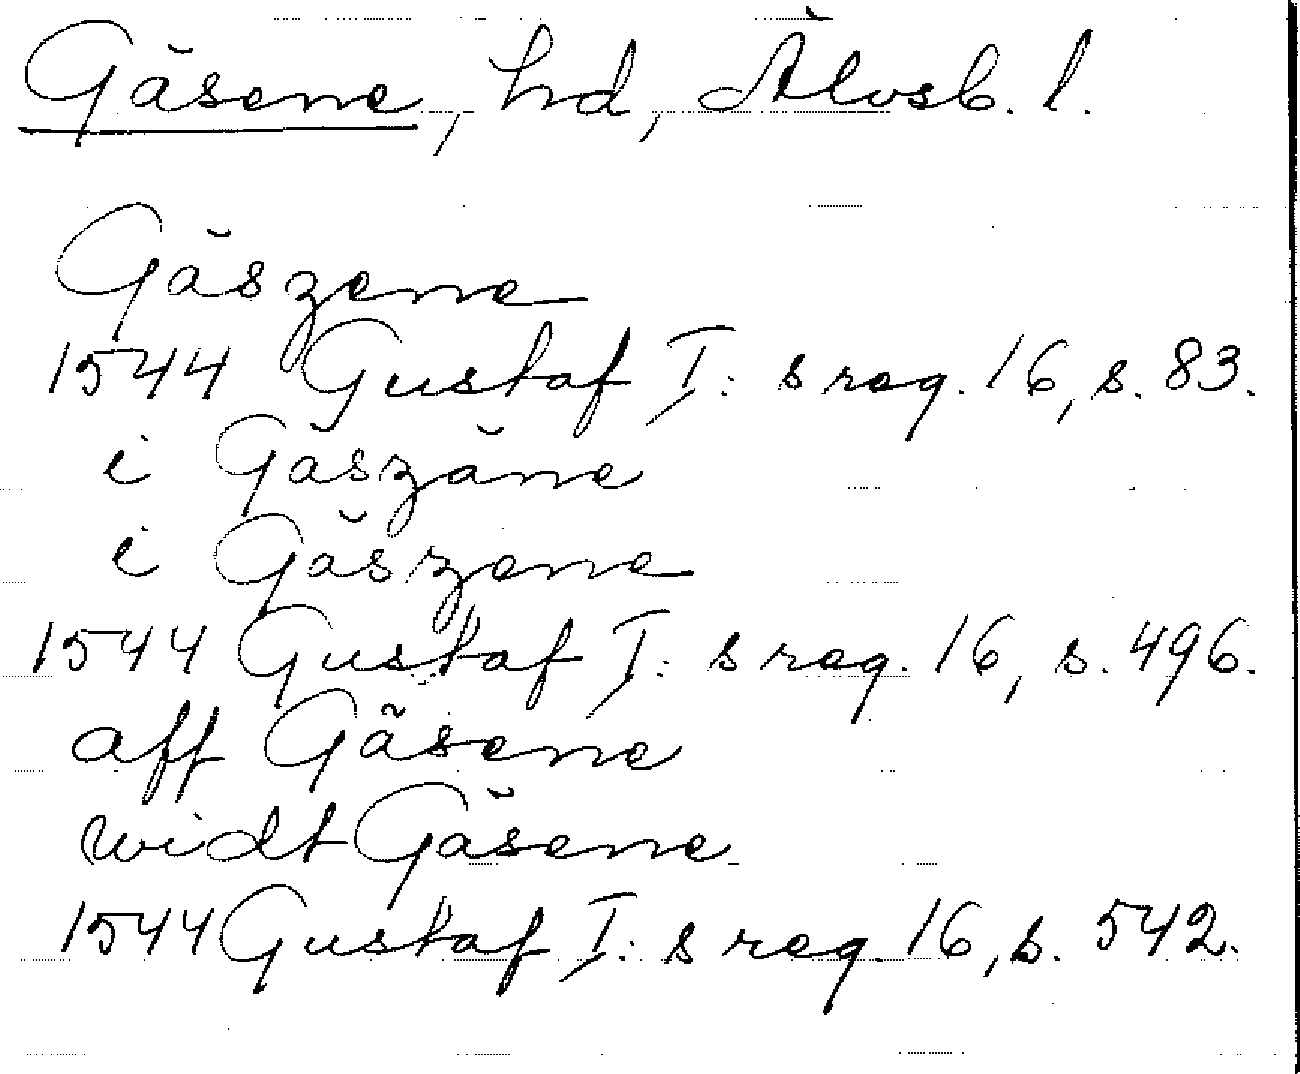 Gäsene, hd, Älvsb. l.
Gäszene
1544 Gustaf I: s reg. 16, s. 83.
i Gäszäne
i Gäszene
1544 Gustaf I: s reg. 16, s. 496.
aff Gäsene
widt Gäsene
1544 Gustaf I: s reg. 16, s. 542.